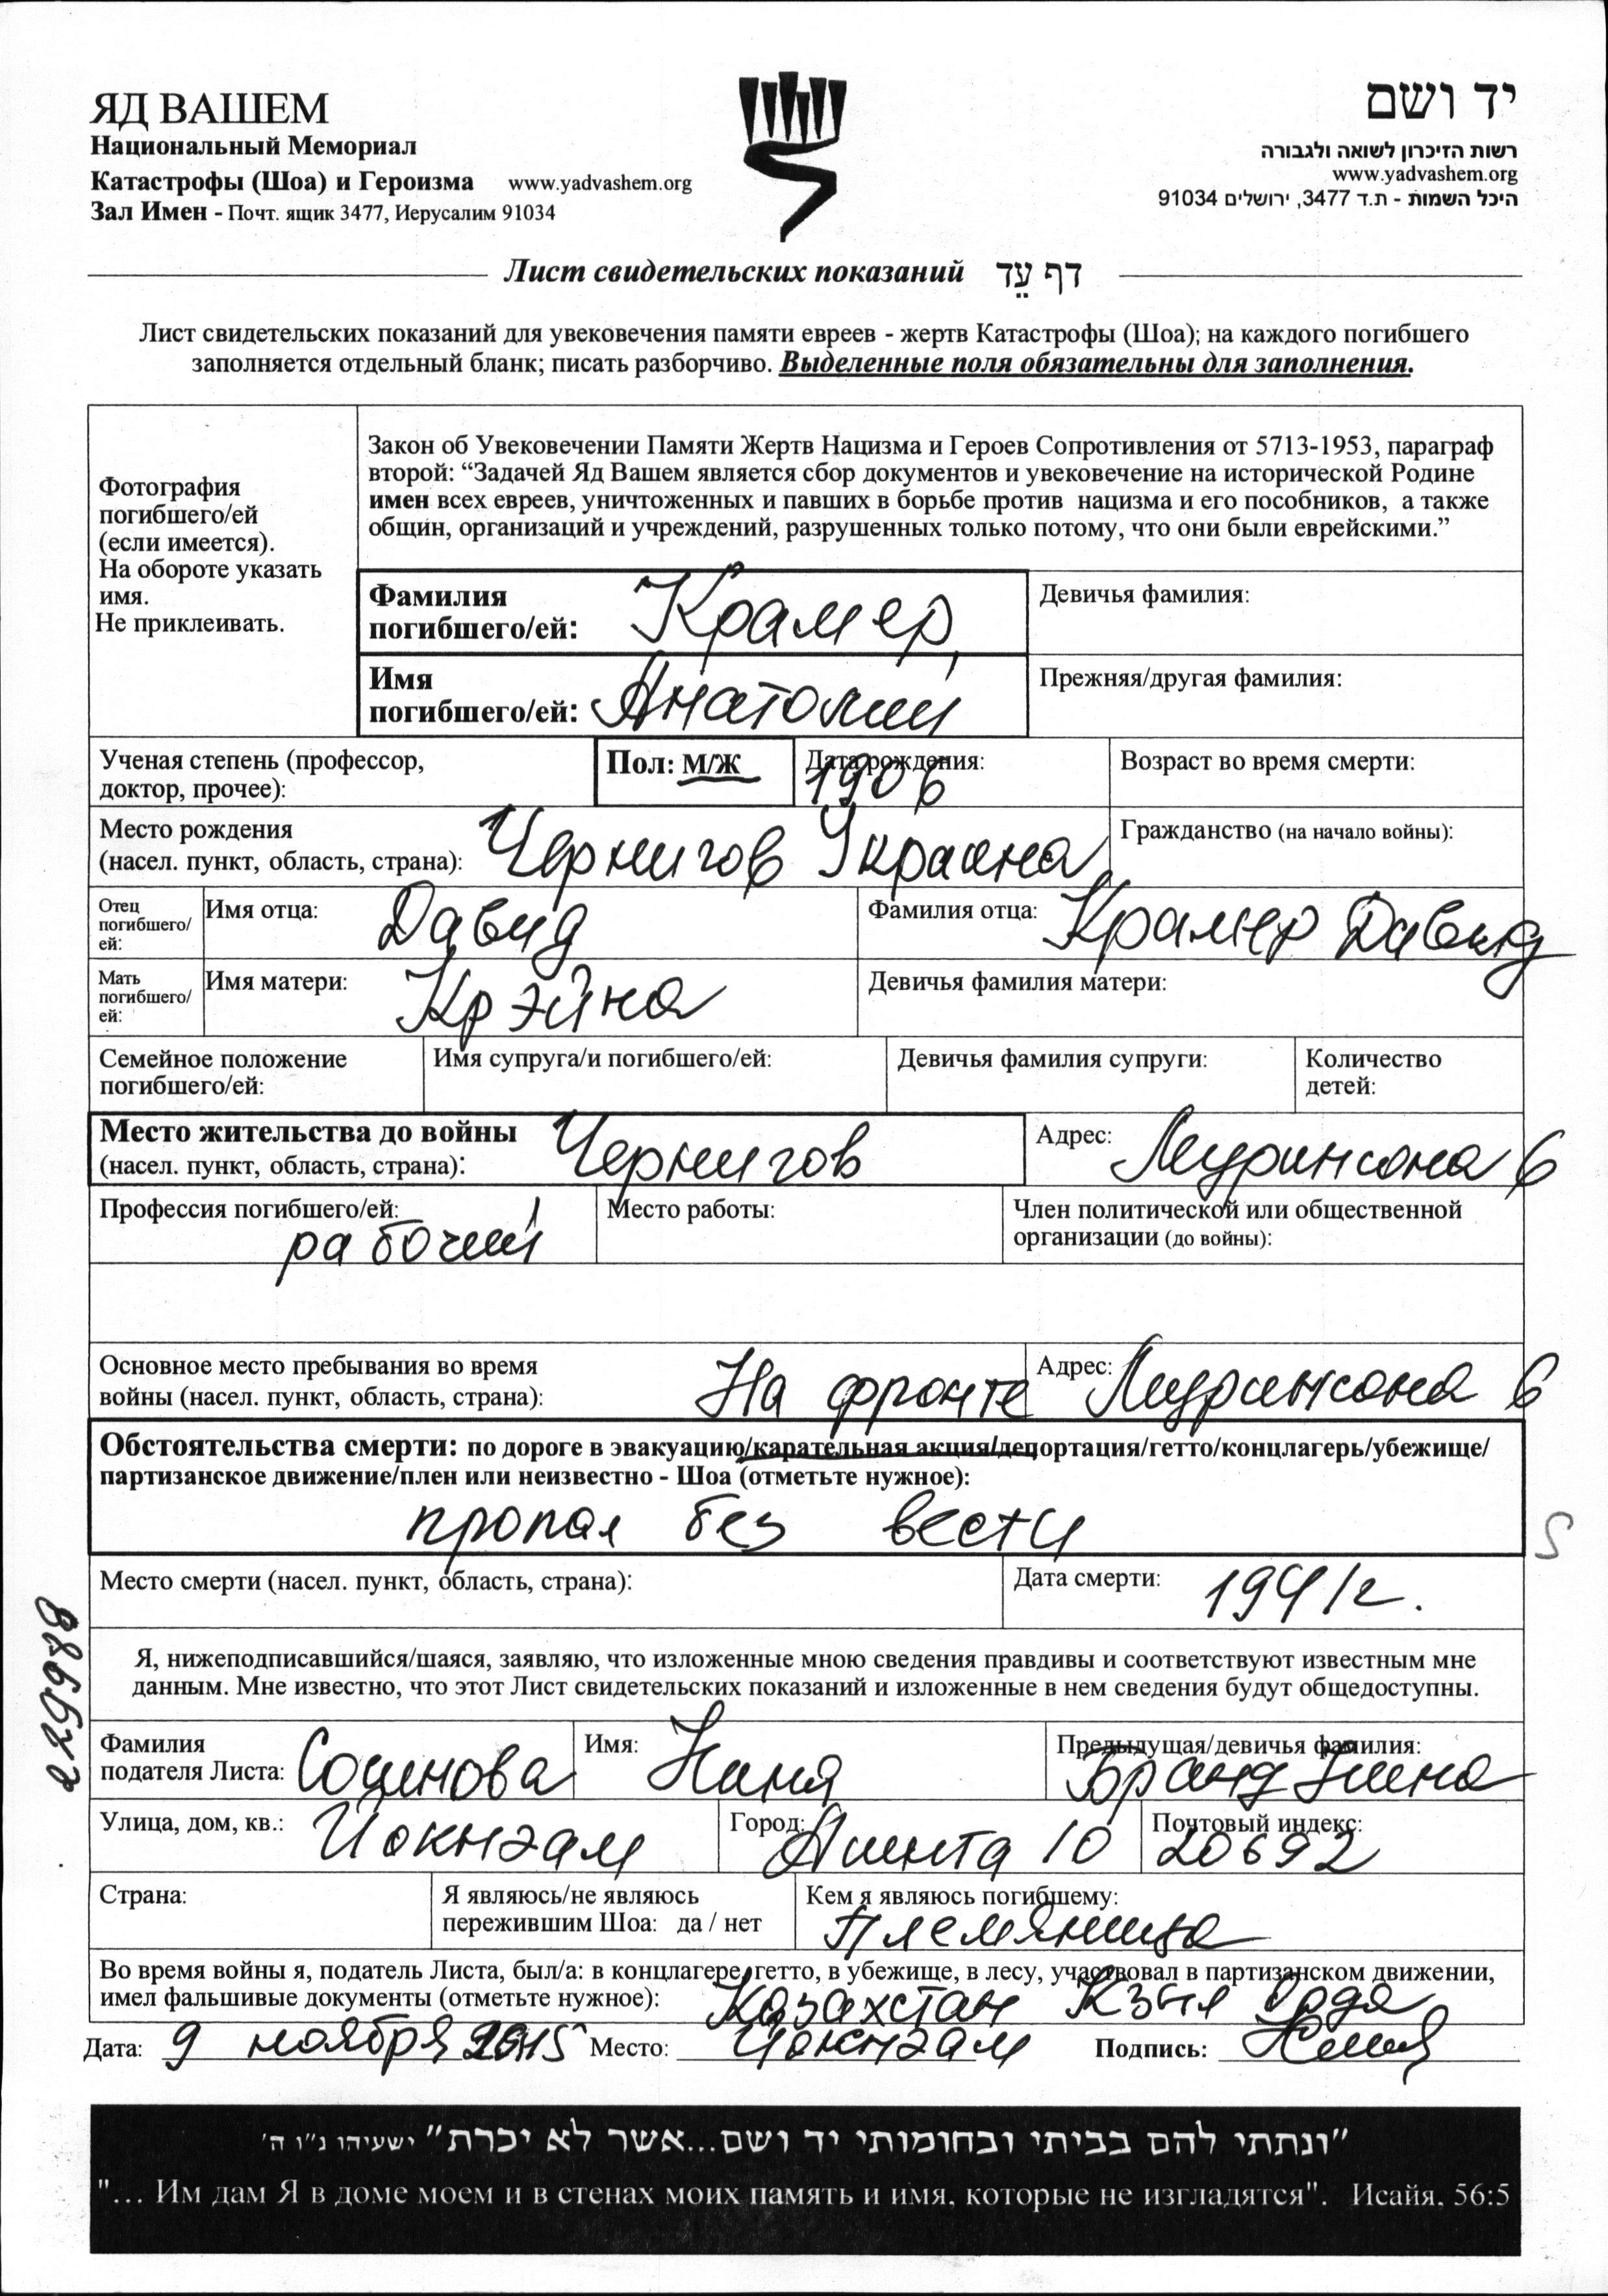 ЯД ВАШЕМ
Национальный Мемориал
Катастрофы (Шоа) и Героизма www.yadvashem.org
Зал Имен - Почт. ящик 3477, Иерусалим 91034
יד ושם
רשות הזיכרון לשואה ולגבורה
www.yadvashem.org
היכל השמות - ת.ד 3477, ירושלים 91034
Лист свидетельских показаний דף עֵד
Лист свидетельских показаний для увековечения памяти евреев - жертв Катастрофы (Шоа); на каждого погибшего
заполняется отдельный бланк; писать разборчиво. Выделенные поля обязательны для заполнения.
Фотография
погибшего/ей
(если имеется).
На обороте указать
имя.
Не приклеивать.
Закон об Увековечении Памяти Жертв Нацизма и Героев Сопротивления от 5713-1953, параграф
второй: “Задачей Яд Вашем является сбор документов и увековечение на исторической Родине
имен всех евреев, уничтоженных и павших в борьбе против нацизма и его пособников, а также
общин, организаций и учреждений, разрушенных только потому, что они были еврейскими.”
Фамилия
погибшего/ей: Крамер
Девичья фамилия:
Имя
погибшего/ей: Анатолий
Прежняя/другая фамилия:
Ученая степень (профессор,
доктор, прочее):
Пол: М/Ж
Дата рождения:
1906
Возраст во время смерти:
Место рождения
(насел. пункт, область, страна): Чернигов Украина
Гражданство (на начало войны):
Отец
погибшего/
ей:
Имя отца: Давид
Фамилия отца: Крамер Давид
Мать
погибшего/
ей:
Имя матери: Крэйна
Девичья фамилия матери:
Семейное положение
погибшего/ей:
Имя супруга/и погибшего/ей:
Девичья фамилия супруги:
Количество
детей:
Место жительства до войны
(насел. пункт, область, страна): Чернигов
Адрес: Муринсона 6
Профессия погибшего/ей:
рабочий
Место работы:
Член политической или общественной
организации (до войны):
Основное место пребывания во время
войны (насел. пункт, область, страна): На фронте
Адрес: Муринсона 6
Обстоятельства смерти: по дороге в эвакуацию/карательная акция/депортация/гетто/концлагерь/убежище/
партизанское движение/плен или неизвестно - Шоа (отметьте нужное):
пропал без вести
S
Место смерти (насел. пункт, область, страна):
Дата смерти: 1941г.
Я, нижеподписавшийся/шаяся, заявляю, что изложенные мною сведения правдивы и соответствуют известным мне
данным. Мне известно, что этот Лист свидетельских показаний и изложенные в нем сведения будут общедоступны.
Фамилия
подателя Листа:
Имя: Нина
Предыдущая/девичья фамилия:
Бранд Нина
Улица, дом, кв.: Йокнэам
Город: 10
Почтовый индекс:
20692
Страна:
Я являюсь/не являюсь
пережившим Шоа: да / нет
Кем я являюсь погибшему:
Племяница
Во время войны я, податель Листа, был/а: в концлагере, гетто, в убежище, в лесу, участвовал в партизанском движении,
имел фальшивые документы (отметьте нужное): Казахстан Кзыл Орда
Дата: 9 ноября 2015 Место: Йокнэам Подпись:
"ונתתי להם בביתי ובחומותי יד ושם...אשר לא יכרת" ישעיהו נ"ו ה'
"... Им дам Я в доме моем и в стенах моих память и имя, которые не изгладятся". Исайя, 56:5